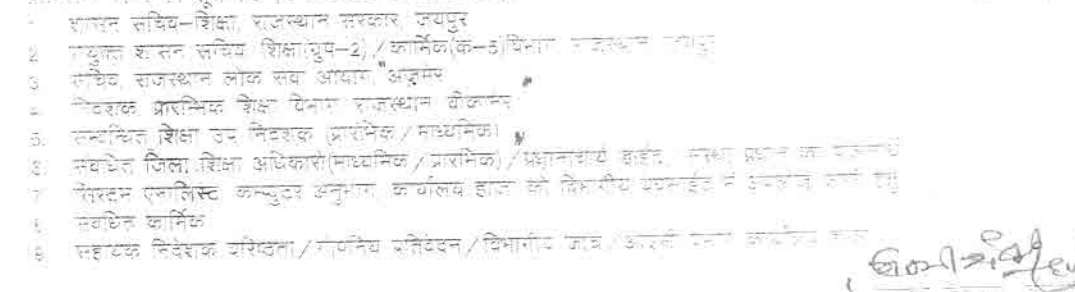 शासन सचिव–शिक्षा, राजस्थान सरकार, जयपुर
2 संयुक्त शासन सचिव शिक्षा(ग्रुप–2) / कार्मिक(क–3)विभाग राजस्थान जयपुर
3 सचिव, राजस्थान लोक सेवा आयोग, अजमेर
निदेशक, प्रारम्भिक शिक्षा विभाग राजस्थान बीकानेर
5. सम्बन्धित शिक्षा उप निदेशक (प्रारंभिक / माध्यमिक)
6. संबंधित जिला शिक्षा अधिकारी(माध्यमिक / प्रारंभिक) / प्रधानाचार्य डाईट, संस्था प्रधान
7 सिस्टम एनालिस्ट कम्प्यूटर अनुभाग, कार्यालय हाजा को विभागीय वेबसाईट
संबंधित कार्मिक
सहायक निदेशक वरिष्ठता / गोपनीय प्रतिवेदन / विभागीय जांच /